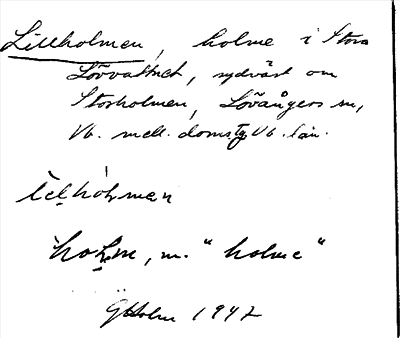 Lillholmen, holme i Stora
Lövvattnet, sydväst om
Storholmen, Lövångers sn,
Vb. mell. domsg Vb. län.
lilhòlman
holm, m. "holme"
GHolm 1947